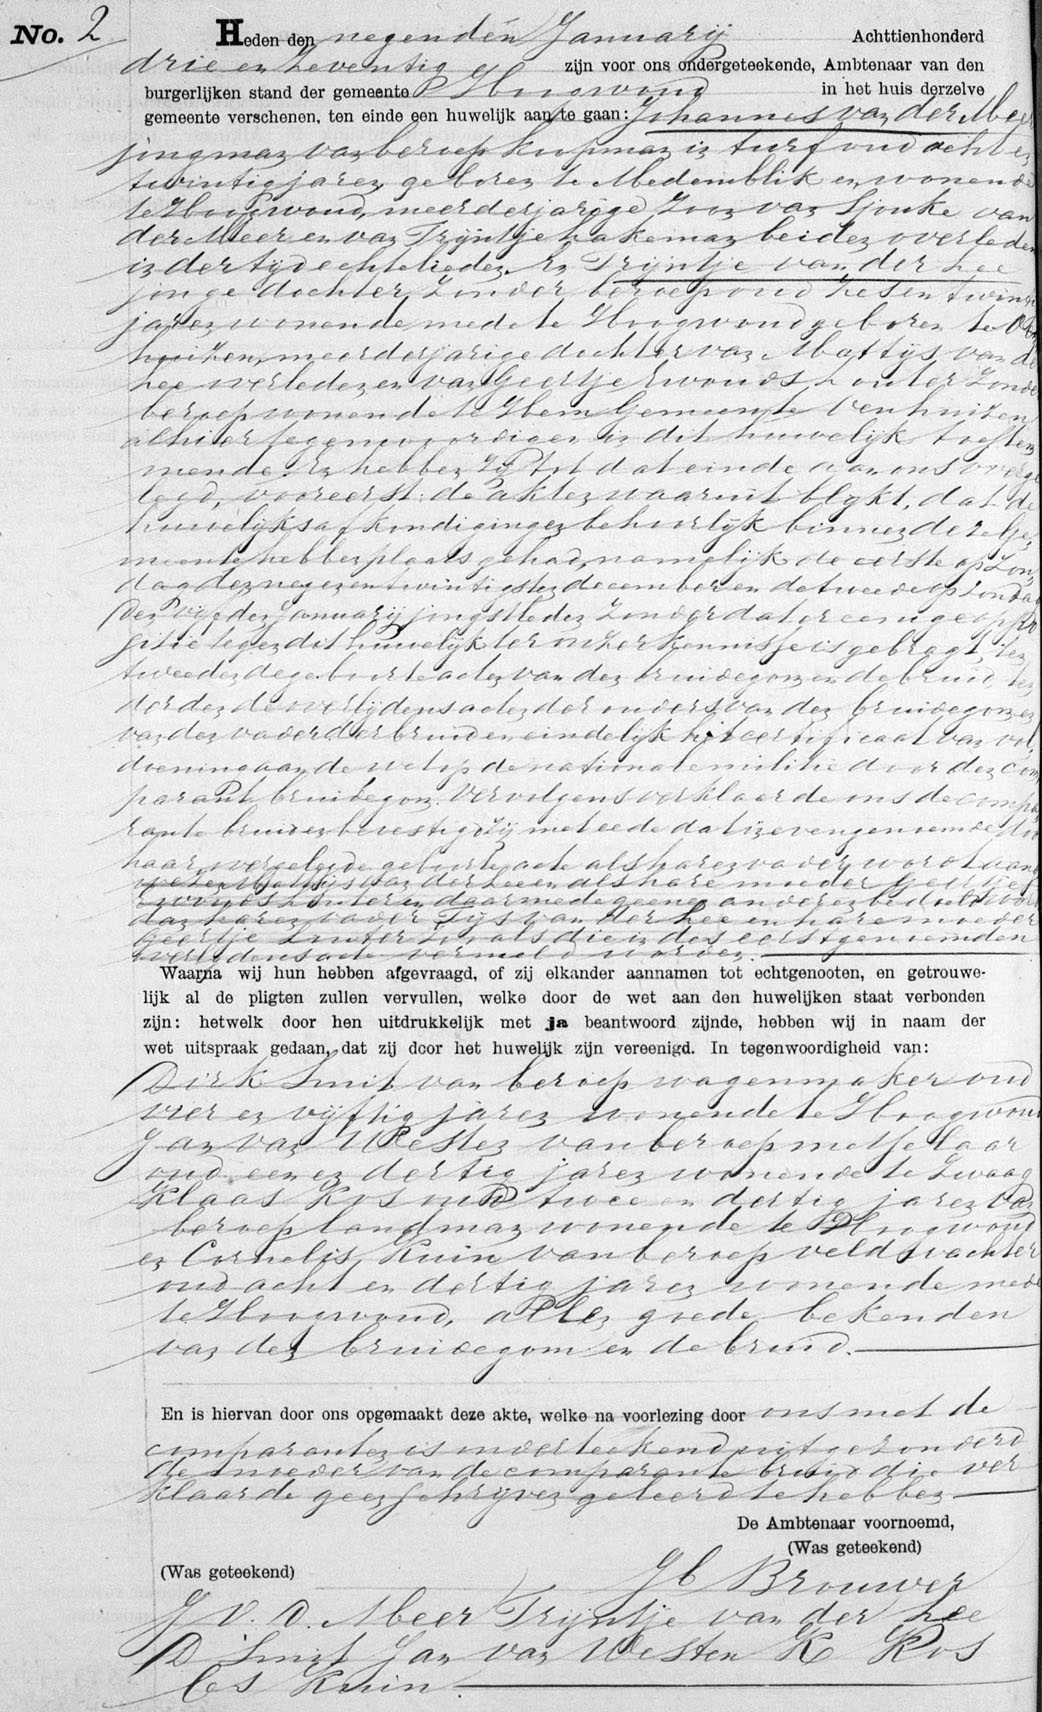 No. 2 Heden den negenden Januarij Achttienhonderd
drie en zeventig zijn voor ons ondergeteekende, Ambtenaar van den
burgerlijken stand der gemeente Hoogwoud in het huis derzelve
gemeente verschenen, ten einde een huwelijk aan te gaan: Johannes van der Meer
jongman van beroep koopman in turf oud acht en
twintig jaren geboren te Medemblik en wonende
te Hoogwoud, meerderjarige Zoon van Sjouke van
der Meer en van Trijntje Hakeman beiden overleden
in der tijd echtelieden. En Trijntje van der Lee
jonge dochter, zonder beroep oud zes en twintig
jaren wonende mede te Hoogwoud geboren te
huizen, meerderjarige dochter van Mattijs van der
Lee overleden en van Geertje Ewouds Louter Zonder
beroep wonende te Hem Gemeente Venhuizen
alhier tegenwoordig en in dit huwelijk toestem
mende. En hebben zij tot dat einde aan ons overge
legd, vooreerst: de akten waaruit blijkt, dat de
huwelijksafkondigingen behoorlijk binnen deze Ge
meente hebben plaats gehad, namelijk de eerste op Zon
dag den negen en twintigsten december en de tweede op Zondag
den vijfden Januarij jongstleden zonder dat er eenige oppo
sitie tegen dit huwelijk ter onzer kennisse is gebragt, ten
tweeden de geboorte acten van den bruidegom en de bruid, ten
derden de overlijdens acten der ouders van den bruidegom en
van den vader der bruid en eindelijk het certificaat van vol
doening aan de wet op de nationale militie door den com
parant bruidegom. Vervolgens verklaarde ons de compa
rante bruid en bevestigd zij met eede dat
haar overgelegde geboorte acte als haren vader wordt
Mattijs van der Lee en als hare moeder Geertje
Ewouds Louter en daarmede geene anderen bedoeld
dan haren vader Tijs van der Lee en hare moeder
Geertje Louter zooals die in des eerstgenoemden
overlijdens acte vermeld worden.
Waarna wij hun hebben afgevraagd, of zij elkander aannamen tot echtgenooten, en getrouwe-
lijk al de pligten zullen vervullen, welke door de wet aan den huwelijken staat verbonden
zijn: hetwelk door hen uitdrukkelijk met ja beantwoord zijnde, hebben wij in naam der
wet uitspraak gedaan, dat zij door het huwelijk zijn vereenigd. In tegenwoordigheid van:
Dirk Smit van beroep wagenmaker oud
vier en vijftig jaren wonende te Hoogwoud
Jan van Westen van beroep metselaar
oud een en dertig jaren wonende te Zwaag
Klaas Kos oud twee en dertig jaren van
beroep landman wonende te Hoogwoud
en Cornelis Kuin van beroep veldwachter
oud acht en dertig jaren wonende mede
te Hoogwoud, allen goede bekenden
van den bruidegom en de bruid.
En is hiervan door ons opgemaakt deze akte, welke na voorlezing door ons met de
comparanten is onderteekend uitgezonderd
de moeder van de comparante bruid die ver
klaarde geen schrijven geleerd te hebben
De Ambtenaar voornoemd,
(Was geteekend)
(Was geteekend)
Brouwer
J V. D. Meer Trijntje van der Lee
D Smit Jan van Westen K Kos
Cs Kuin